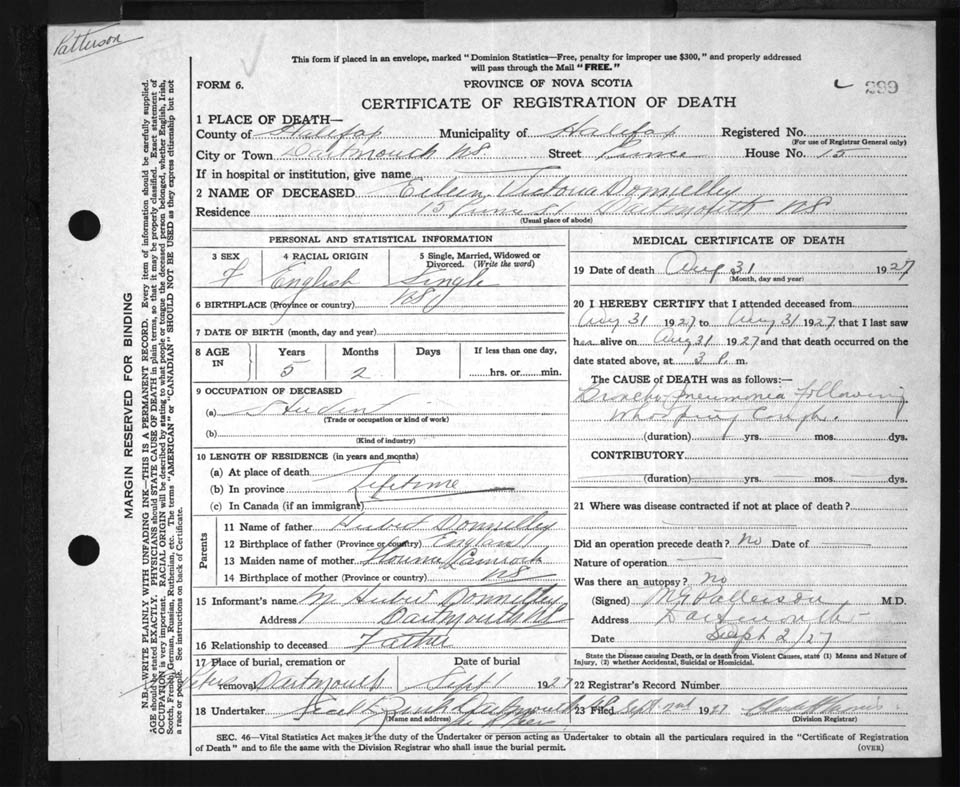 Patterson
This form if placed in an envelope, marked "Dominion Statistics—Free, penalty for improper use $300," and properly addressed
will pass through the Mail "FREE."
FORM 6.
PROVINCE OF NOVA SCOTIA
299
CERTIFICATE OF REGISTRATION OF DEATH
1 PLACE OF DEATH—
County of Halifax Municipality of Halifax Registered No.
(For use of Registrar General only)
City or Town Dartmouth NS Street Prince House No. 15
If in hospital or institution, give name
2 NAME OF DECEASED Eileen Victoria Donnelley
Residence 15 Prince St Dartmouth NS
(Usual place of abode)
PERSONAL AND STATISTICAL INFORMATION
3 SEX 4 RACIAL ORIGIN 5 Single, Married, Widowed or
Divorced. (Write the word)
F English Single
6 BIRTHPLACE (Province or country) NS
7 DATE OF BIRTH (month, day and year)
8 AGE IN Years Months Days If less than one day,
5 2 hrs. or min.
9 OCCUPATION OF DECEASED
(a) Student
(Trade or occupation or kind of work)
(b)
(Kind of industry)
10 LENGTH OF RESIDENCE (in years and months)
(a) At place of death
(b) In province Lifetime
(c) In Canada (if an immigrant)
Parents
11 Name of father Hubert Donnelley
12 Birthplace of father (Province or country) England
13 Maiden name of mother
14 Birthplace of mother (Province or country) NS
15 Informant's name Mr Donnelley
Address Dartmouth NS
16 Relationship to deceased Father
17 Place of burial, cremation or Date of burial
removal Dartmouth Sept 1 1927
18 Undertaker Dartmouth
(Name and address)
MEDICAL CERTIFICATE OF DEATH
19 Date of death Aug 31 1927
(Month, day and year)
20 I HEREBY CERTIFY that I attended deceased from
Aug 31 1927 to Aug 31 1927 that I last saw
her alive on Aug 31 1927 and that death occurred on the
date stated above, at 3 P. m.
The CAUSE OF DEATH was as follows:—
Broncho Pneumonia following
Whooping Cough.
(duration) yrs. mos. dys.
CONTRIBUTORY
(duration) yrs. mos. dys.
21 Where was disease contracted if not at place of death?
Did an operation precede death? No Date of
Nature of operation
Was there an autopsy? No
(Signed) M G Patterson M.D.
Address Dartmouth
Date Sept 2/27
State the Disease causing Death, or in death from Violent Causes, state (1) Means and Nature of
Injury, (2) whether Accidental, Suicidal or Homicidal.
22 Registrar's Record Number
23 Filed Sept 2nd 1927
(Division Registrar)
SEC. 46—Vital Statistics Act makes it the duty of the Undertaker or person acting as Undertaker to obtain all the particulars required in the "Certificate of Registration
of Death" and to file the same with the Division Registrar who shall issue the burial permit.
(OVER)
MARGIN RESERVED FOR BINDING
N.B.—WRITE PLAINLY WITH UNFADING INK—THIS IS A PERMANENT RECORD. Every item of information should be carefully supplied.
AGE should be stated EXACTLY. PHYSICIANS should STATE CAUSE OF DEATH in plain terms, so that it may be properly classified. Exact statement of
OCCUPATION is very important. RACIAL ORIGIN will be described by stating to what people or tongue the deceased person belonged, whether English, Irish,
Scotch, French, German, Russian, Ruthenian, etc. The terms "AMERICAN" or "CANADIAN" SHOULD NOT BE USED as they express citizenship but not
a race or people. See instructions on back of Certificate.